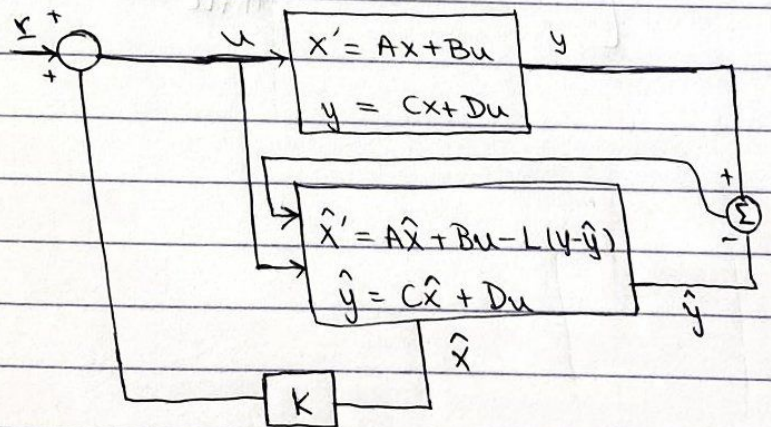 r + +
u
x' = Ax + Bu
y = Cx + Du
y
+
Σ
-
x̂' = Ax̂ + Bu - L(y-ŷ)
ŷ = Cx̂ + Du
ŷ
x̂
K